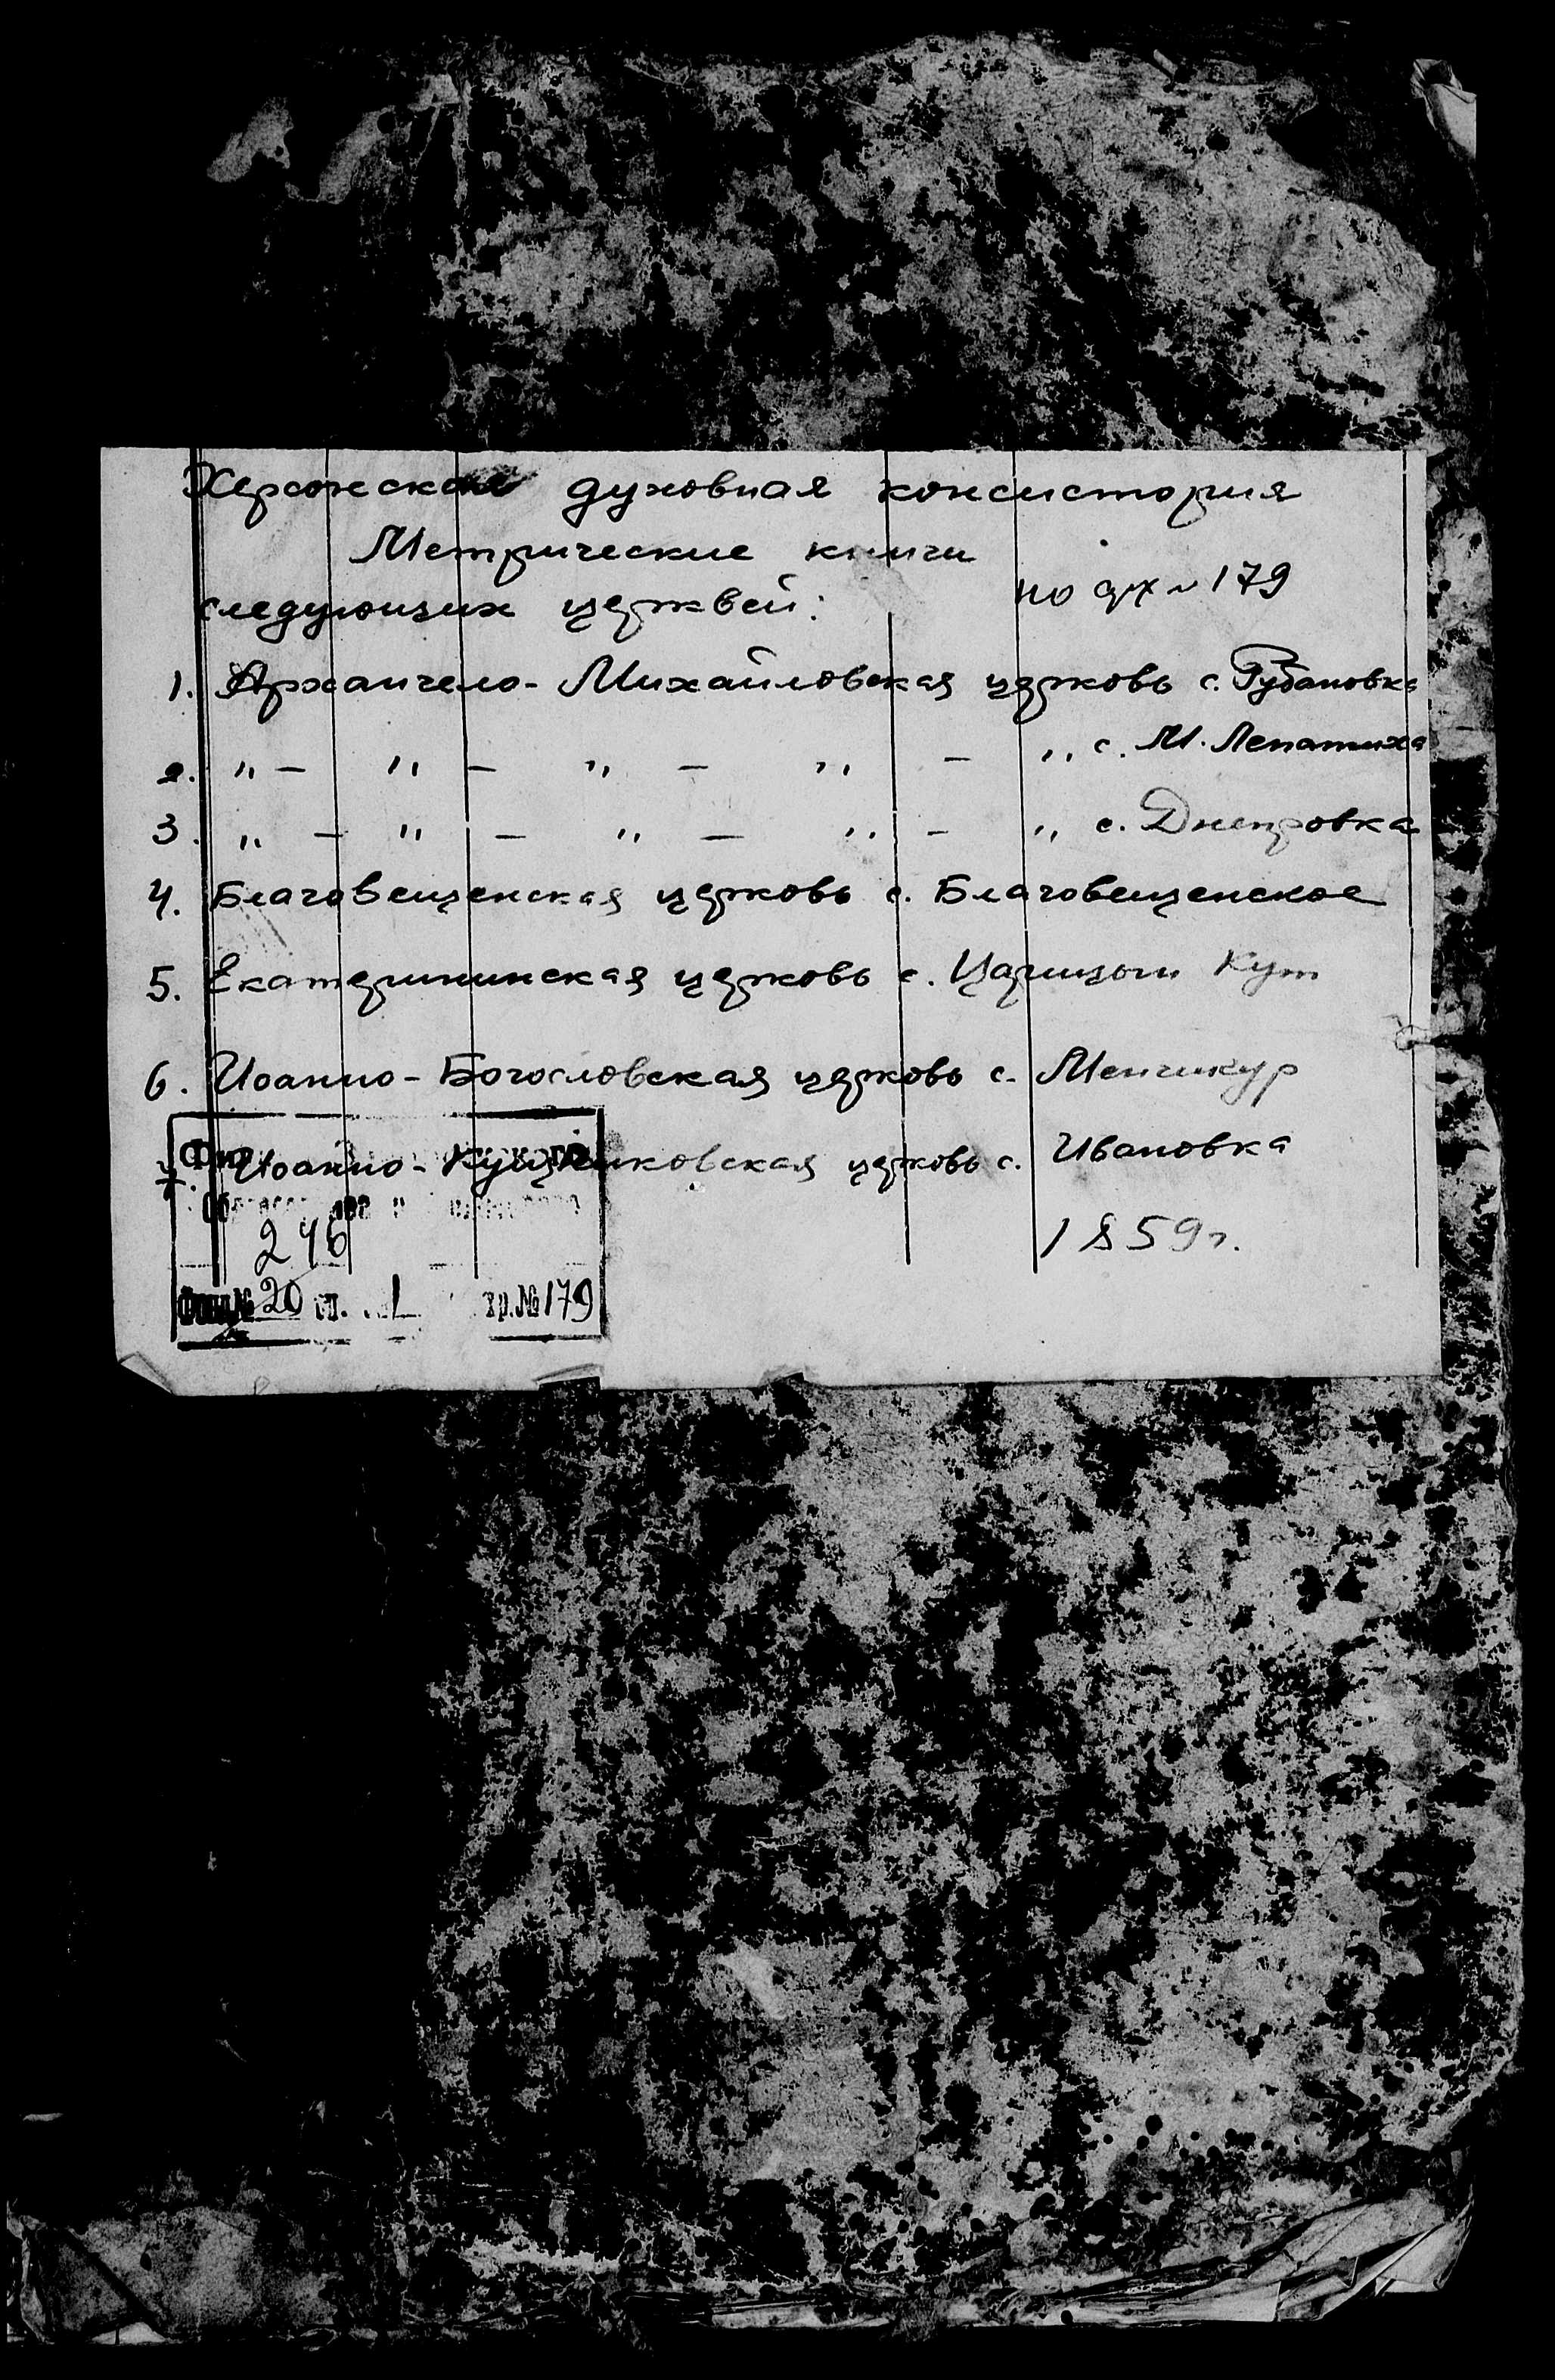 Херсонская духовная консистория
Метрические книги
следующих церквей:
по дх № 179
1. Архангело-Михайловская церковь с. Рубановка
2. „ – „ – „ – „ – „ с. М. Лепатиха
3. „ – „ – „ – „ – „ с. Днепровка
4. Благовещенская церковь с. Благовещенское
5. Екатерининская церковь с. Царицын Кут
6. Иоанно-Богословская церковь с. Менчикур
7. Иоанно- церковь с. Ивановка
1859г.
246
Фонд № 20 оп. 1 хр. № 179